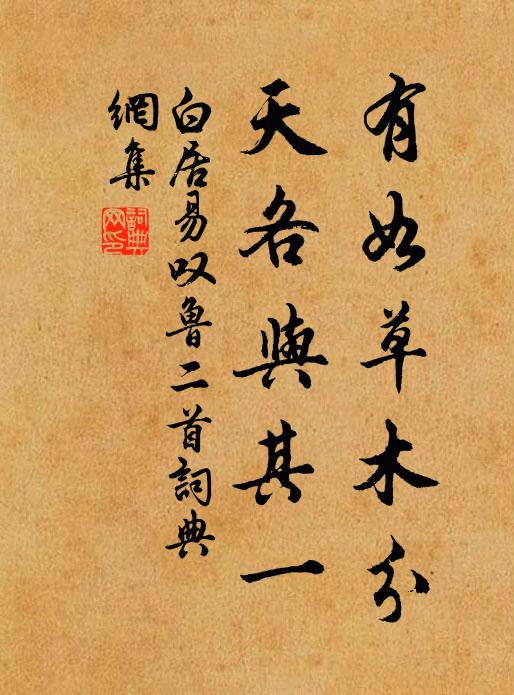 有如草木分
天各與其一
白居易叹鲁二首詞典
網集
詞典
网印